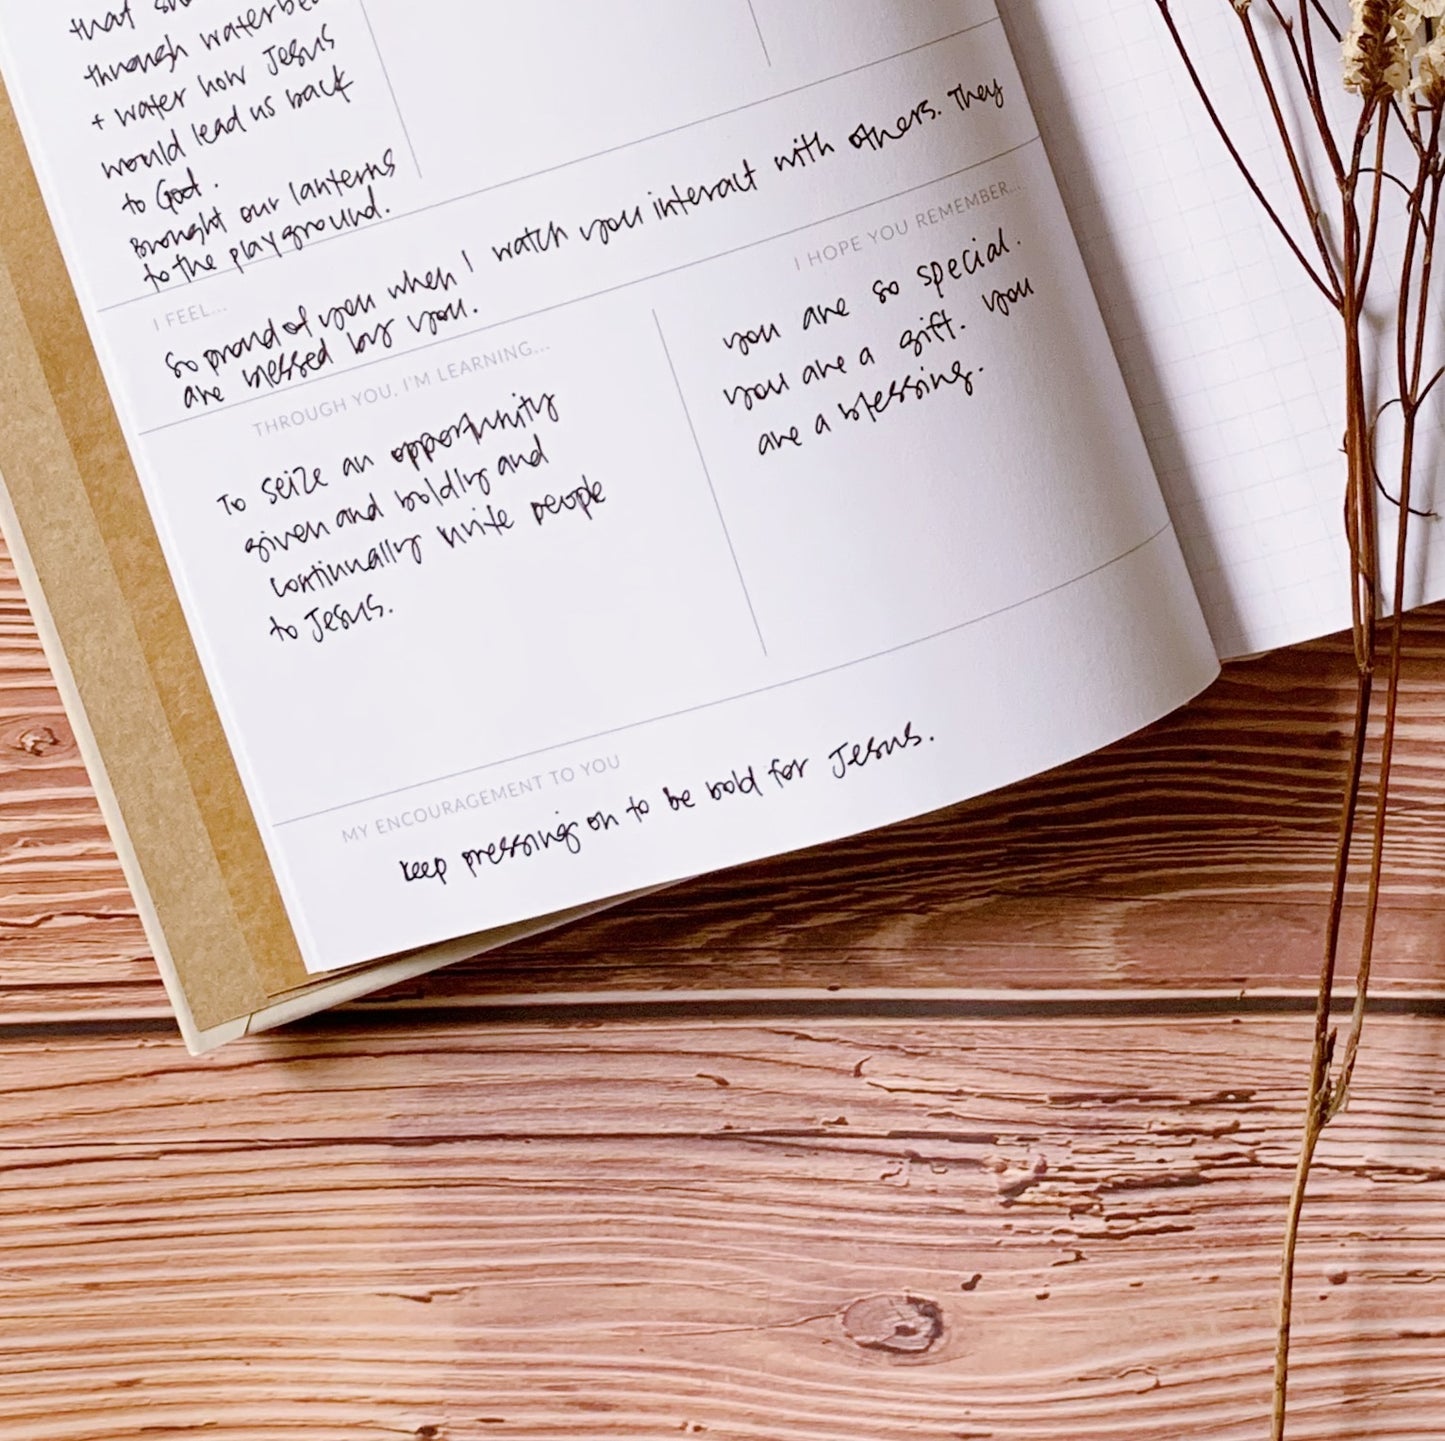 that
through
+ water how Jesus
would lead us back
to God.
Brought our lanterns
to the playground.
I FEEL...
So proud of you when I watch you interact with others. They
are blessed by you.
THROUGH YOU, I'M LEARNING...
To seize an opportunity
given and boldly and
continually invite people
to Jesus.
I HOPE YOU REMEMBER...
you are so special.
you are a gift. you
are a blessing.
MY ENCOURAGEMENT TO YOU
keep pressing on to be bold for Jesus.